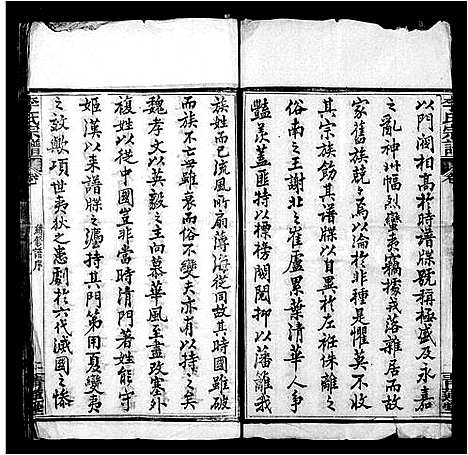 以門閥相高於時譜牒號稱極盛及永嘉
之亂神州幅烈蠻夷竊據我落離居而故
家舊族競競焉以淪於非種是懼莫不收
其宗族飭其譜牒以自異於左袵侏離之
俗南之王謝北之崔盧累葉清華令人
豔羨蓋匪特以標榜閥閱抑以藩離我
族姓而已流風所扇薄海從同故時國雖破
家不苦毋雖衰而俗不變夫亦有以持之矣
魏孝文以英毅之主向慕華風至盡改塞外
複姓以從中國豈非當時清門著姓能守
姬漢以來譜牒之灋持其門第用夏變夷
之效歟項世夷狄之患劇於六代滅國之慘
李氏宗譜 卷
續修譜序
李氏宗譜 卷